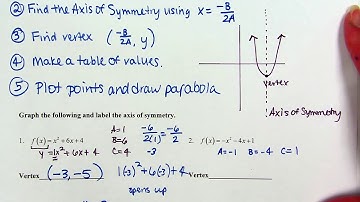 ② Find the Axis of Symmetry using x = -B/2A
③ Find vertex (-B/2A, y)
④ make a table of values.
⑤ Plot points and draw parabola
vertex
Axis of Symmetry
Graph the following and label the axis of symmetry.
1. f(x) = x² + 6x + 4
y = 1x² + 6x + 4
A=1
B=6
C=4
-6/2(1) = -6/2
-3
2. f(x) = -x² - 4x + 1
A=-1 B=-4 C=1
Vertex (-3, -5)
1(-3)² + 6(-3) + 4
opens up
Vertex